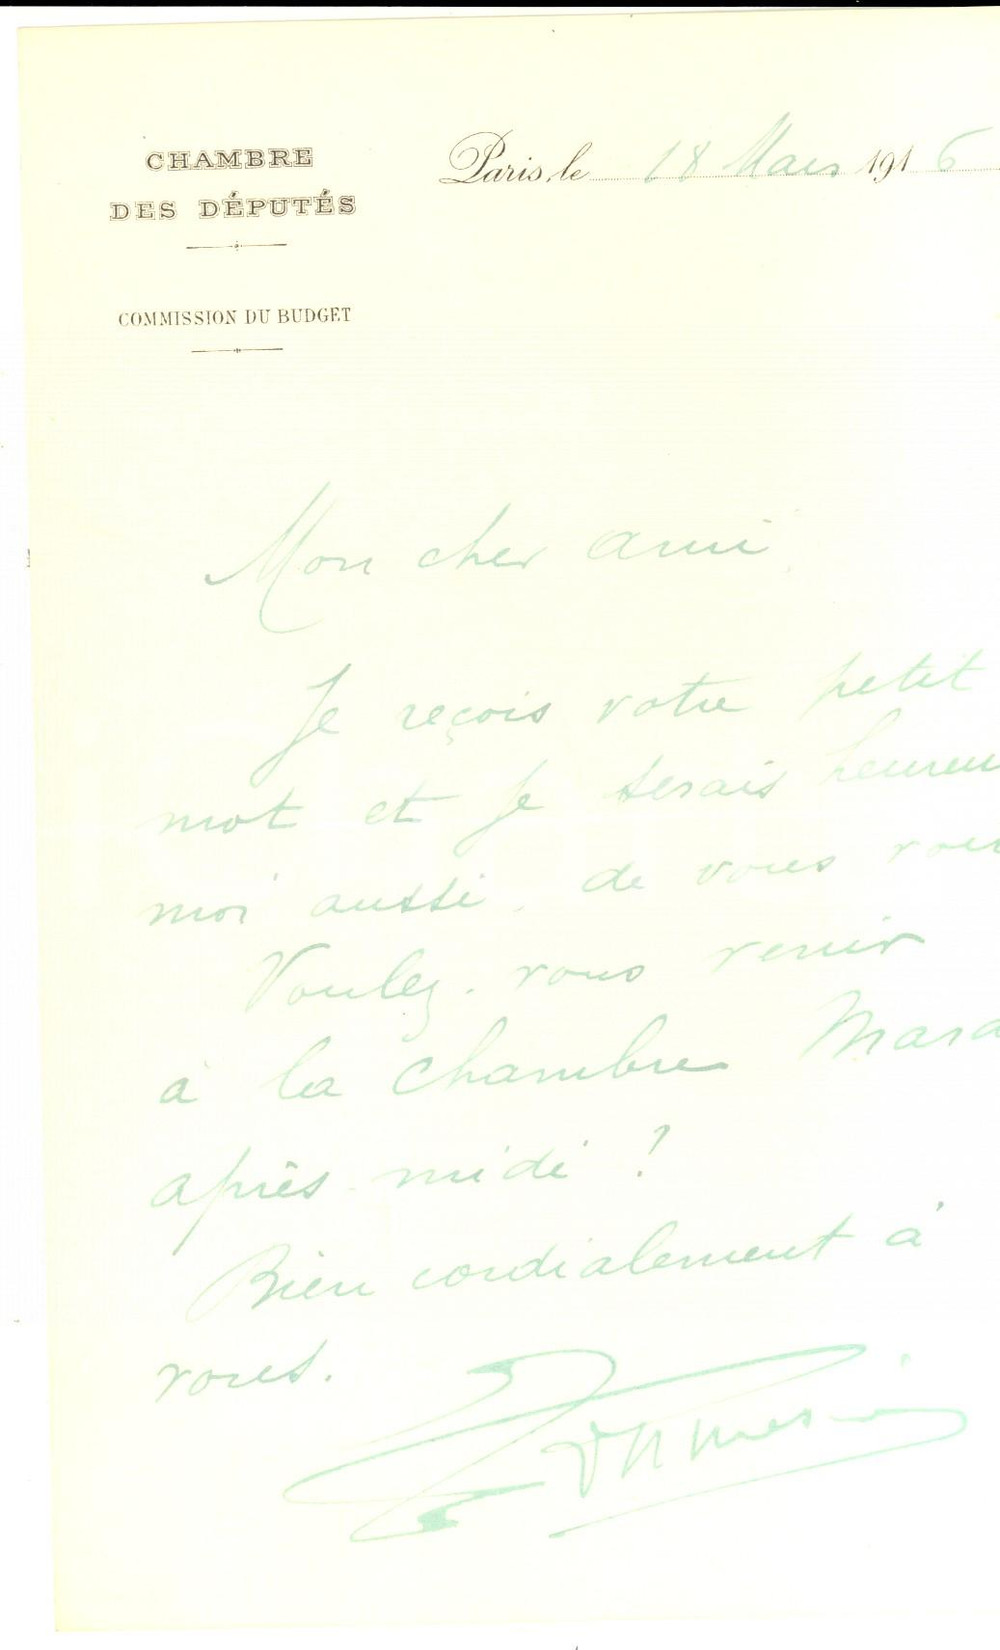 CHAMBRE
DES DÉPUTÉS
COMMISSION DU BUDGET
Paris, le 18 Mars 1916
Mon cher ami,
Je reçois votre petit
mot et je serais heureu
moi aussi, de vous voir
Voulez-vous venir
à la Chambre Mard
après-midi ?
Bien cordialement à
vous.